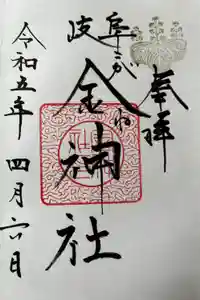 奉拝
岐阜
こがね
金神社
令和五年
四月六日